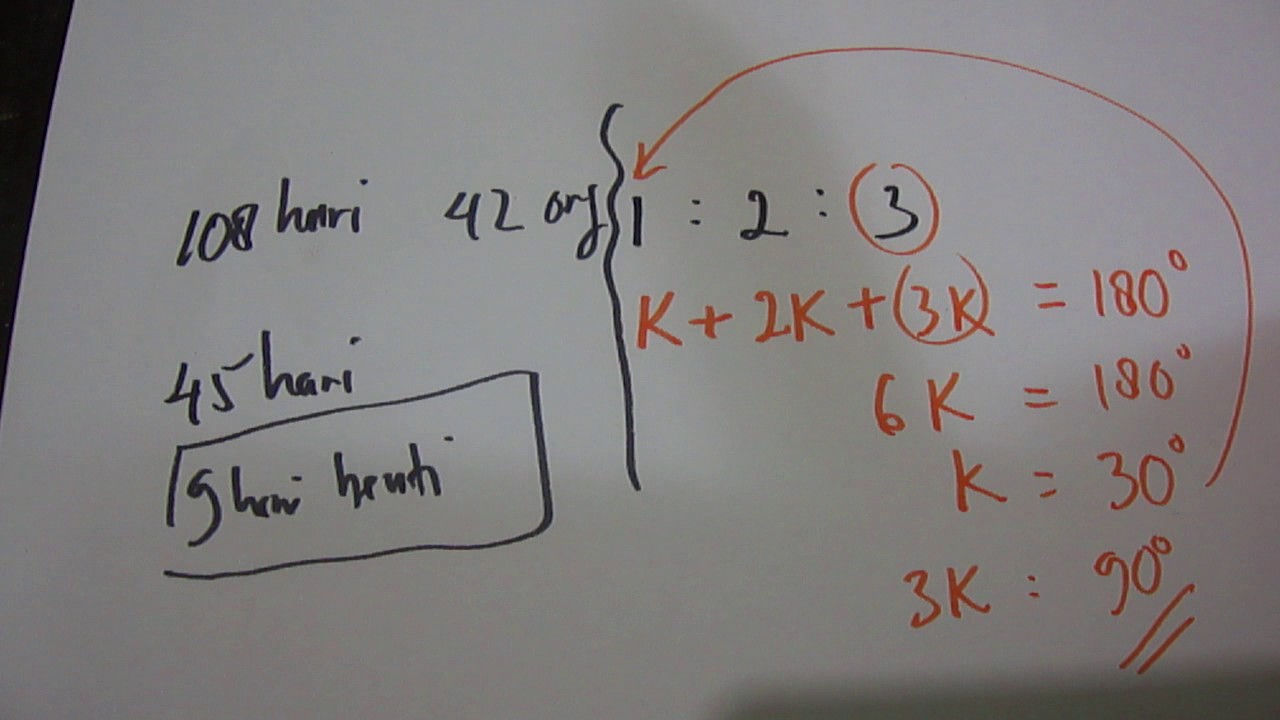 108 hari 42 org
45 hari
9 hari henti
1 : 2 : 3
K + 2K + (3K) = 180°
6K = 180°
K = 30°
3K : 90°